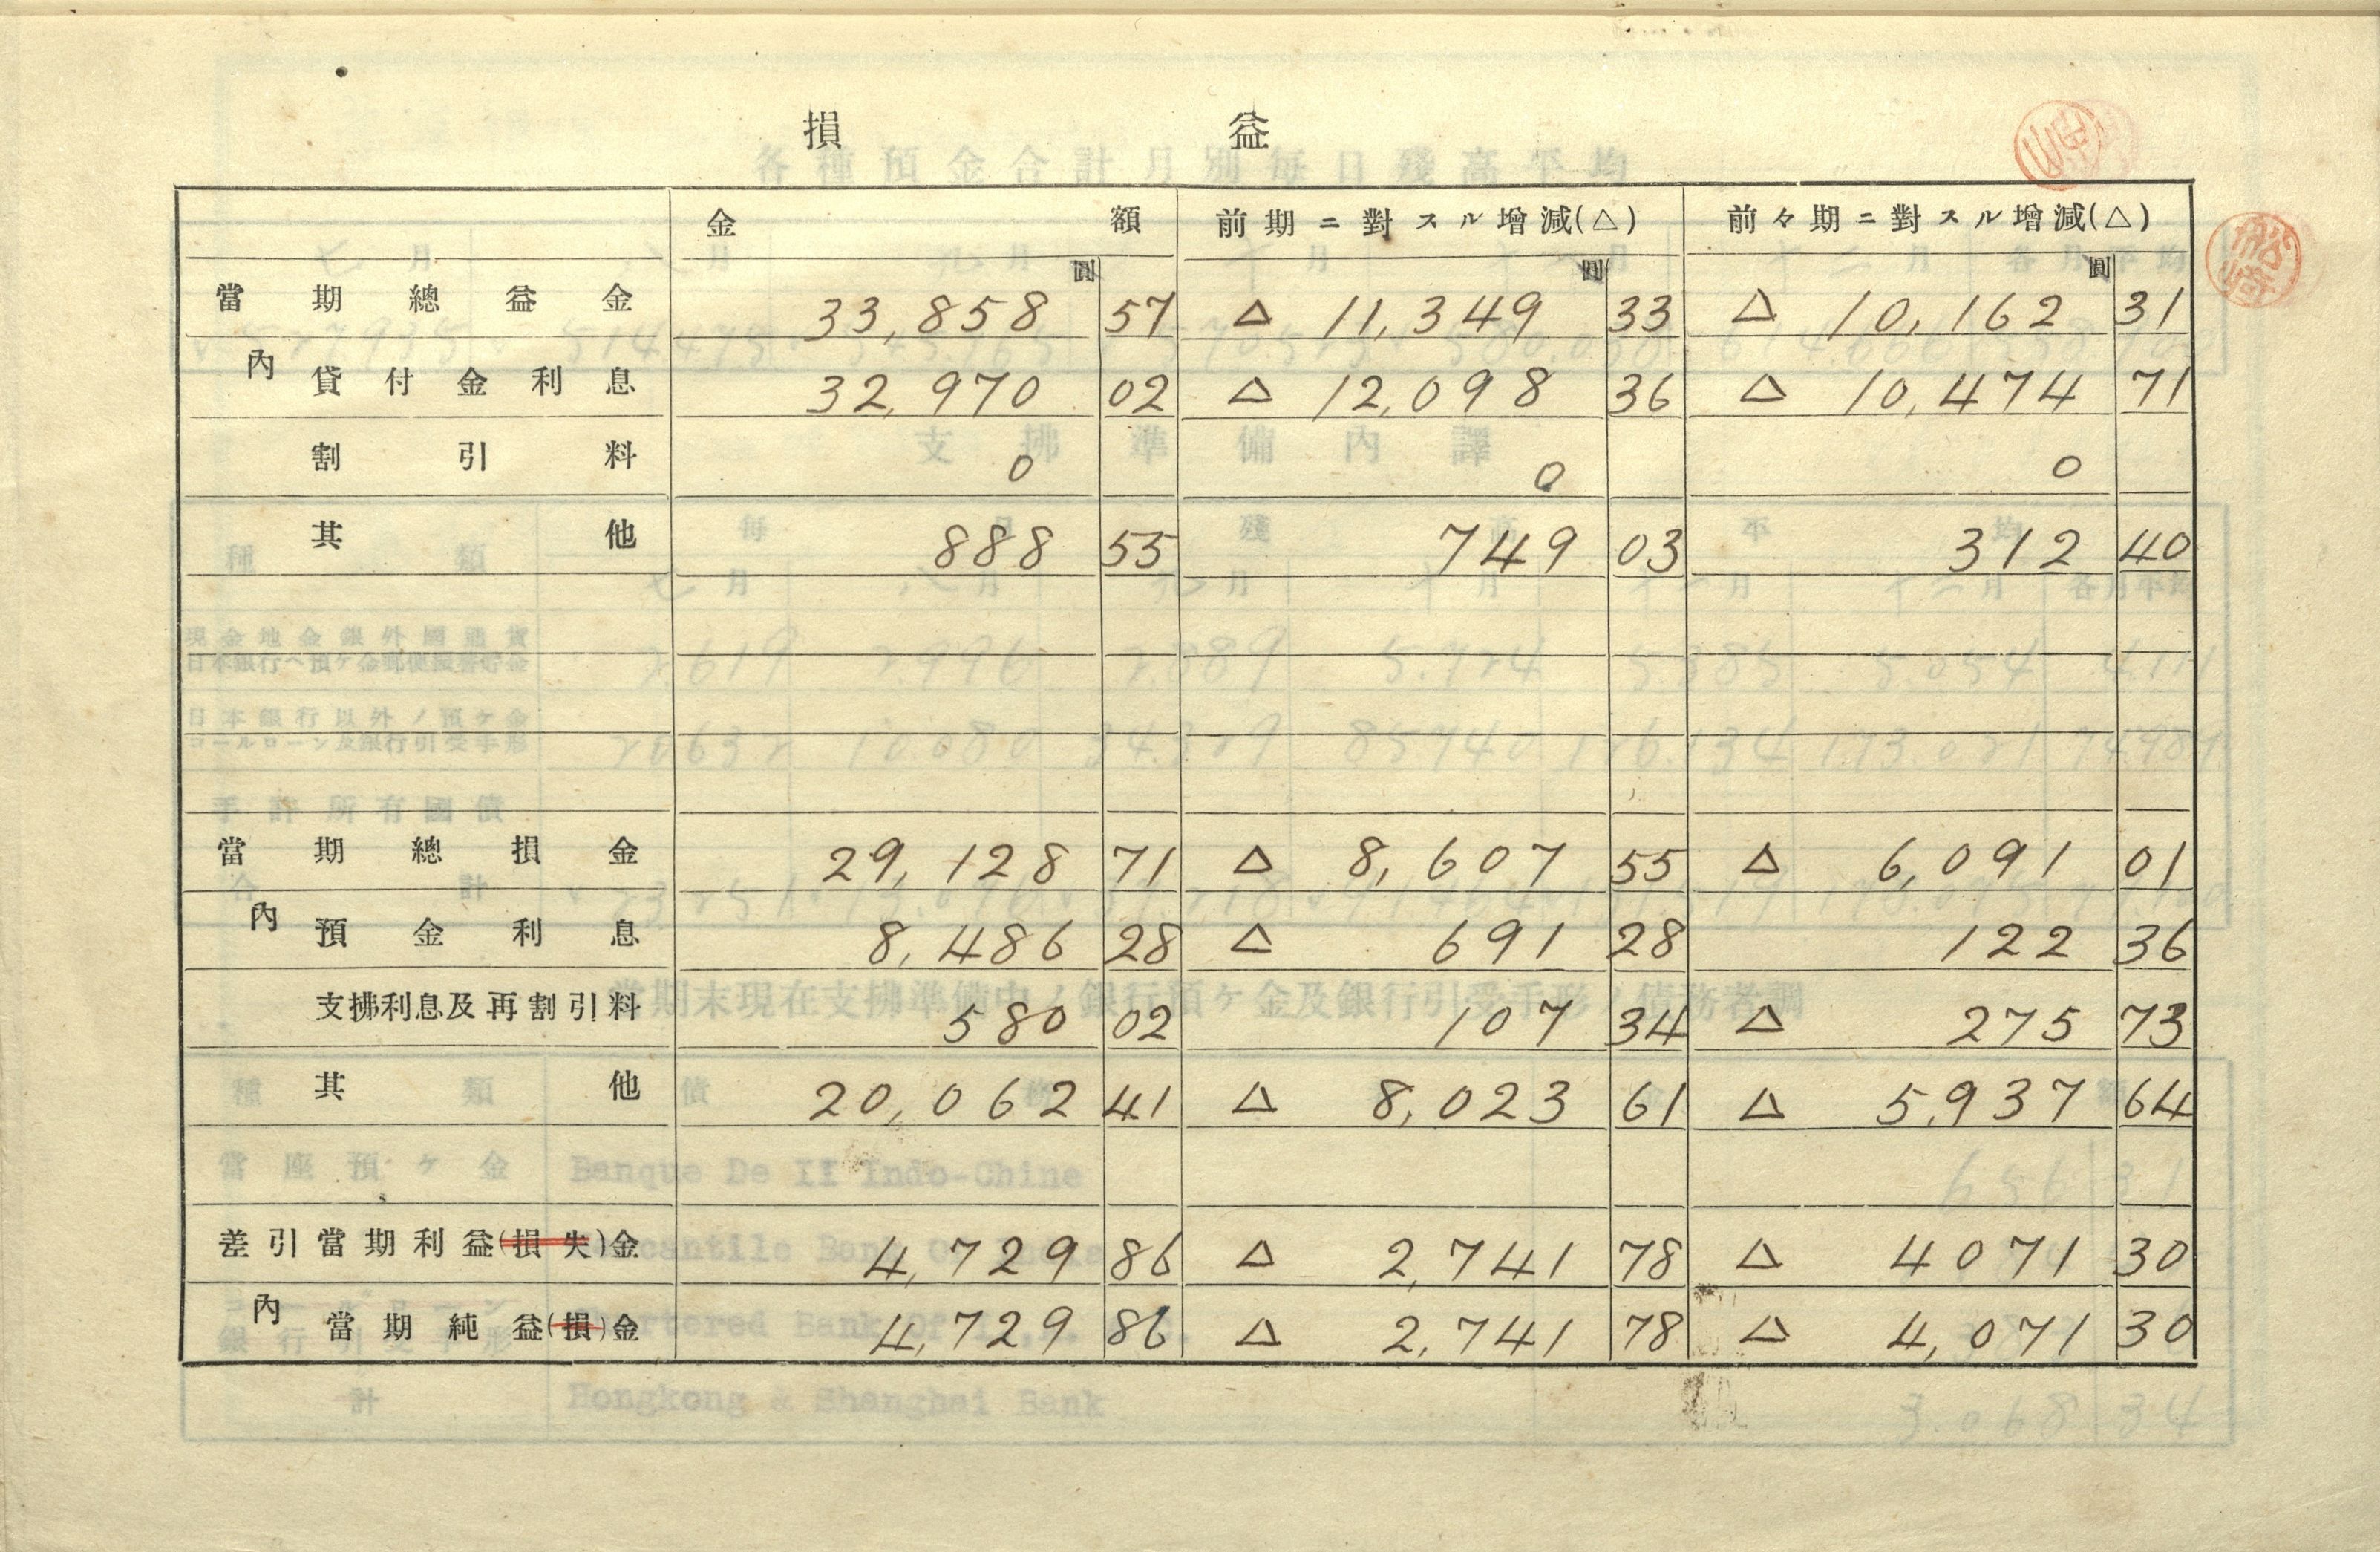 損益
金額 前期ニ對スル增減(△) 前々期ニ對スル增減(△)
圓 圓 圓
當期總益金 33,858 57 △ 11,349 33 △ 10,162 31
內 貸付金利息 32,970 02 △ 12,098 36 △ 10,474 71
割引料 0 0 0
其他 888 55 749 03 312 40
當期總損金 29,128 71 △ 8,607 55 △ 6,091 01
內 預金利息 8,486 28 △ 691 28 122 36
支拂利息及再割引料 580 02 107 34 △ 275 73
其他 20,062 41 △ 8,023 61 △ 5,937 64
差引當期利益(損失)金 4,729 86 △ 2,741 78 △ 4071 30
內 當期純益(損)金 4,729 86 △ 2,741 78 △ 4,071 30